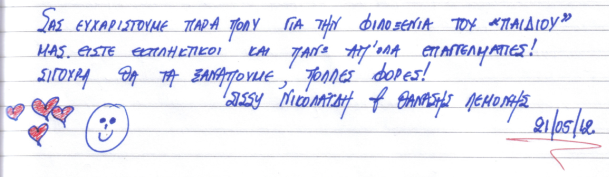 ΣΑΣ ΕΥΧΑΡΙΣΤΟΥΜΕ ΠΑΡΑ ΠΟΛΥ ΓΙΑ ΤΗΝ ΦΙΛΟΞΕΝΙΑ ΤΟΥ "ΠΑΙΔΙΟΥ"
ΜΑΣ. ΕΙΣΤΕ ΕΚΠΛΗΚΤΙΚΟΙ ΚΑΙ ΠΑΝΩ ΑΠ'ΟΛΑ ΕΠΑΓΓΕΛΜΑΤΙΕΣ!
ΣΙΓΟΥΡΑ ΘΑ ΤΑ ΞΑΝΑΠΟΥΜΕ, ΠΟΛΛΕΣ ΦΟΡΕΣ!
ΣΙΣΣΥ ΝΙΚΟΛΑΪΔΗ & ΘΑΝΑΣΗΣ ΛΕΜΟΝΗΣ
21/05/12